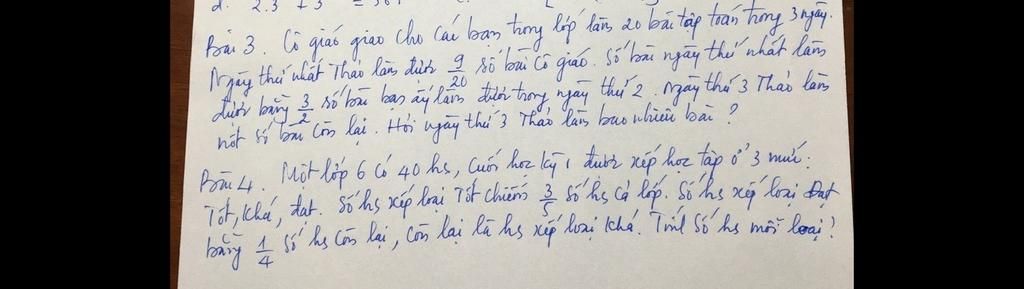 d. 2.3 + 3 = 3
Bài 3. Cô giáo giao cho các bạn trong lớp làm 20 bài tập toán trong 3 ngày.
Ngày thứ nhất Thảo làm được 9/20 số bài cô giao. Số bài ngày thứ nhất làm
được bằng 3/2 số bài bạn ấy làm được trong ngày thứ 2. Ngày thứ 3 Thảo làm
nốt số bài còn lại. Hỏi ngày thứ 3 Thảo làm bao nhiêu bài?
Bài 4. Một lớp 6 có 40 hs, cuối học kỳ 1 được xếp học tập ở 3 mức:
Tốt, khá, đạt. Số hs xếp loại Tốt chiếm 3/5 số hs cả lớp. Số hs xếp loại Đạt
bằng 1/4 số hs còn lại, còn lại là hs xếp loại khá. Tính số hs mỗi loại?